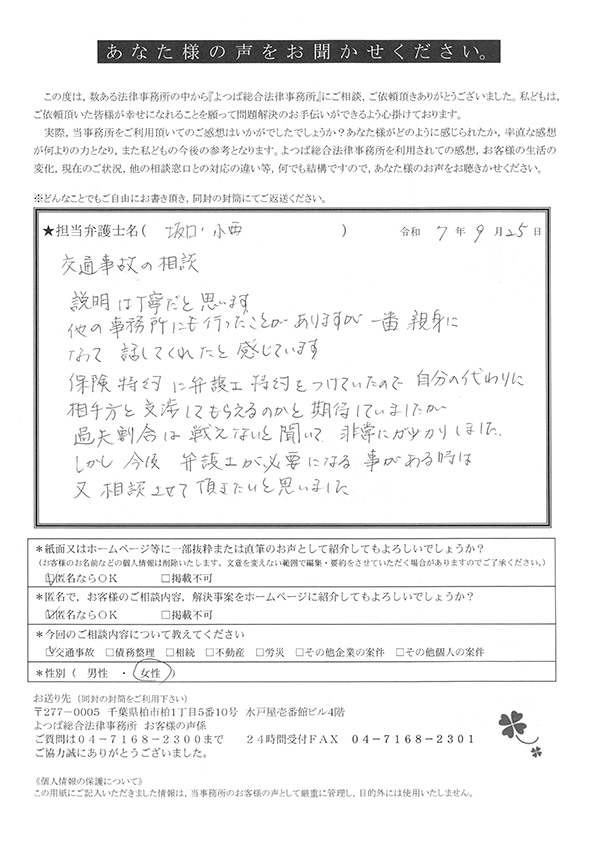 あなた様の声をお聞かせください。
この度は，数ある法律事務所の中から『よつば総合法律事務所』にご相談，ご依頼頂きありがとうございました。私どもは，
ご依頼頂いた皆様が幸せになれることを願って問題解決のお手伝いができるよう心掛けております。
実際，当事務所をご利用頂いてのご感想はいかがでしたでしょうか？あなた様がどのように感じられたか，率直な感想
が何よりの力となり，また私どもの今後の参考となります。よつば総合法律事務所を利用されての感想，お客様の生活の
変化，現在のご状況，他の相談窓口との対応の違い等，何でも結構ですので，あなた様のお声をお聴きかせください。
※どんなことでもご自由にお書き頂き，同封の封筒にてご返送ください。
★担当弁護士名（ 坂口・小西 ） 令和 7 年 9 月 25 日
交通事故の相談
説明は丁寧だと思います
他の事務所にも行ったことがありますが 一番 親身に
なって 話してくれたと 感じています
保険 特約 に弁護士 特約をつけていたので 自分の代わりに
相手方と交渉してもらえるのかと期待していましたが
過失割合は戦えないと聞いて 非常にがっかりしました。
しかし 今後 弁護士が必要になる 事がある時は
又 相談させて 頂きたいと思いました
＊紙面又はホームページ等に一部抜粋または直筆のお声として紹介してもよろしいでしょうか？
（お客様のお名前などの個人情報は削除いたします。文意を変えない範囲で編集・要約をさせていただく場合がありますのでご了承ください。）
☑匿名ならＯＫ □掲載不可
＊匿名で，お客様のご相談内容，解決事案をホームページに紹介してもよろしいでしょうか？
☑匿名ならＯＫ □掲載不可
＊今回のご相談内容について教えてください
☑交通事故 □債務整理 □相続 □不動産 □労災 □その他企業の案件 □その他個人の案件
＊性別（ 男性 ・ 女性 ）
お送り先（同封の封筒をご利用下さい）
〒277－0005 千葉県柏市柏1丁目5番10号 水戸屋壱番館ビル4階
よつば総合法律事務所 お客様の声係
ご質問は０４－７１６８－２３００まで ２４時間受付ＦＡＸ ０４－７１６８－２３０１
ご協力誠にありがとうございました。
《個人情報の保護について》
この用紙にご記入いただきました情報は，当事務所のお客様の声として厳重に管理し，目的外には使用いたしません。